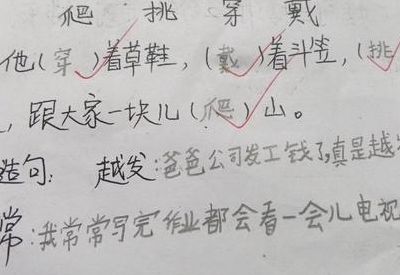 爬 挑 穿 戴
他(穿)着草鞋，(戴)着斗笠，(挑
，跟大家一块儿(爬)山。
造句： 越发：爸爸公司发工钱了，真是越发
常：我常常写完作业都会看一会儿电视